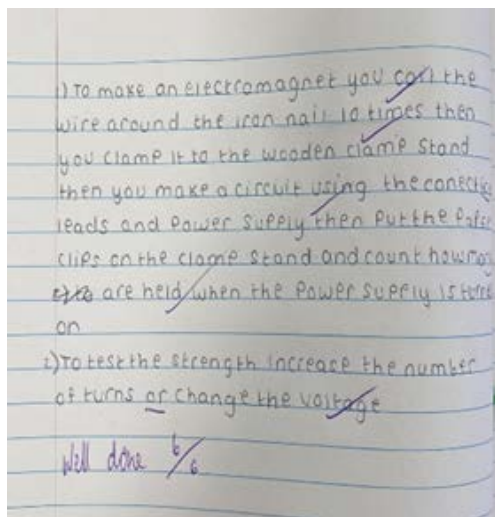 1) To make an electromagnet you coil the
wire around the iron nail 10 times then
you clamp it to the wooden clamp stand
then you make a circuit using the conecting
leads and power supply then put the paper
clips on the clamp stand and count how many
are held when the power supply is turned
on
2) To test the strength increace the number
of turns or change the voltage
Well done 6/6